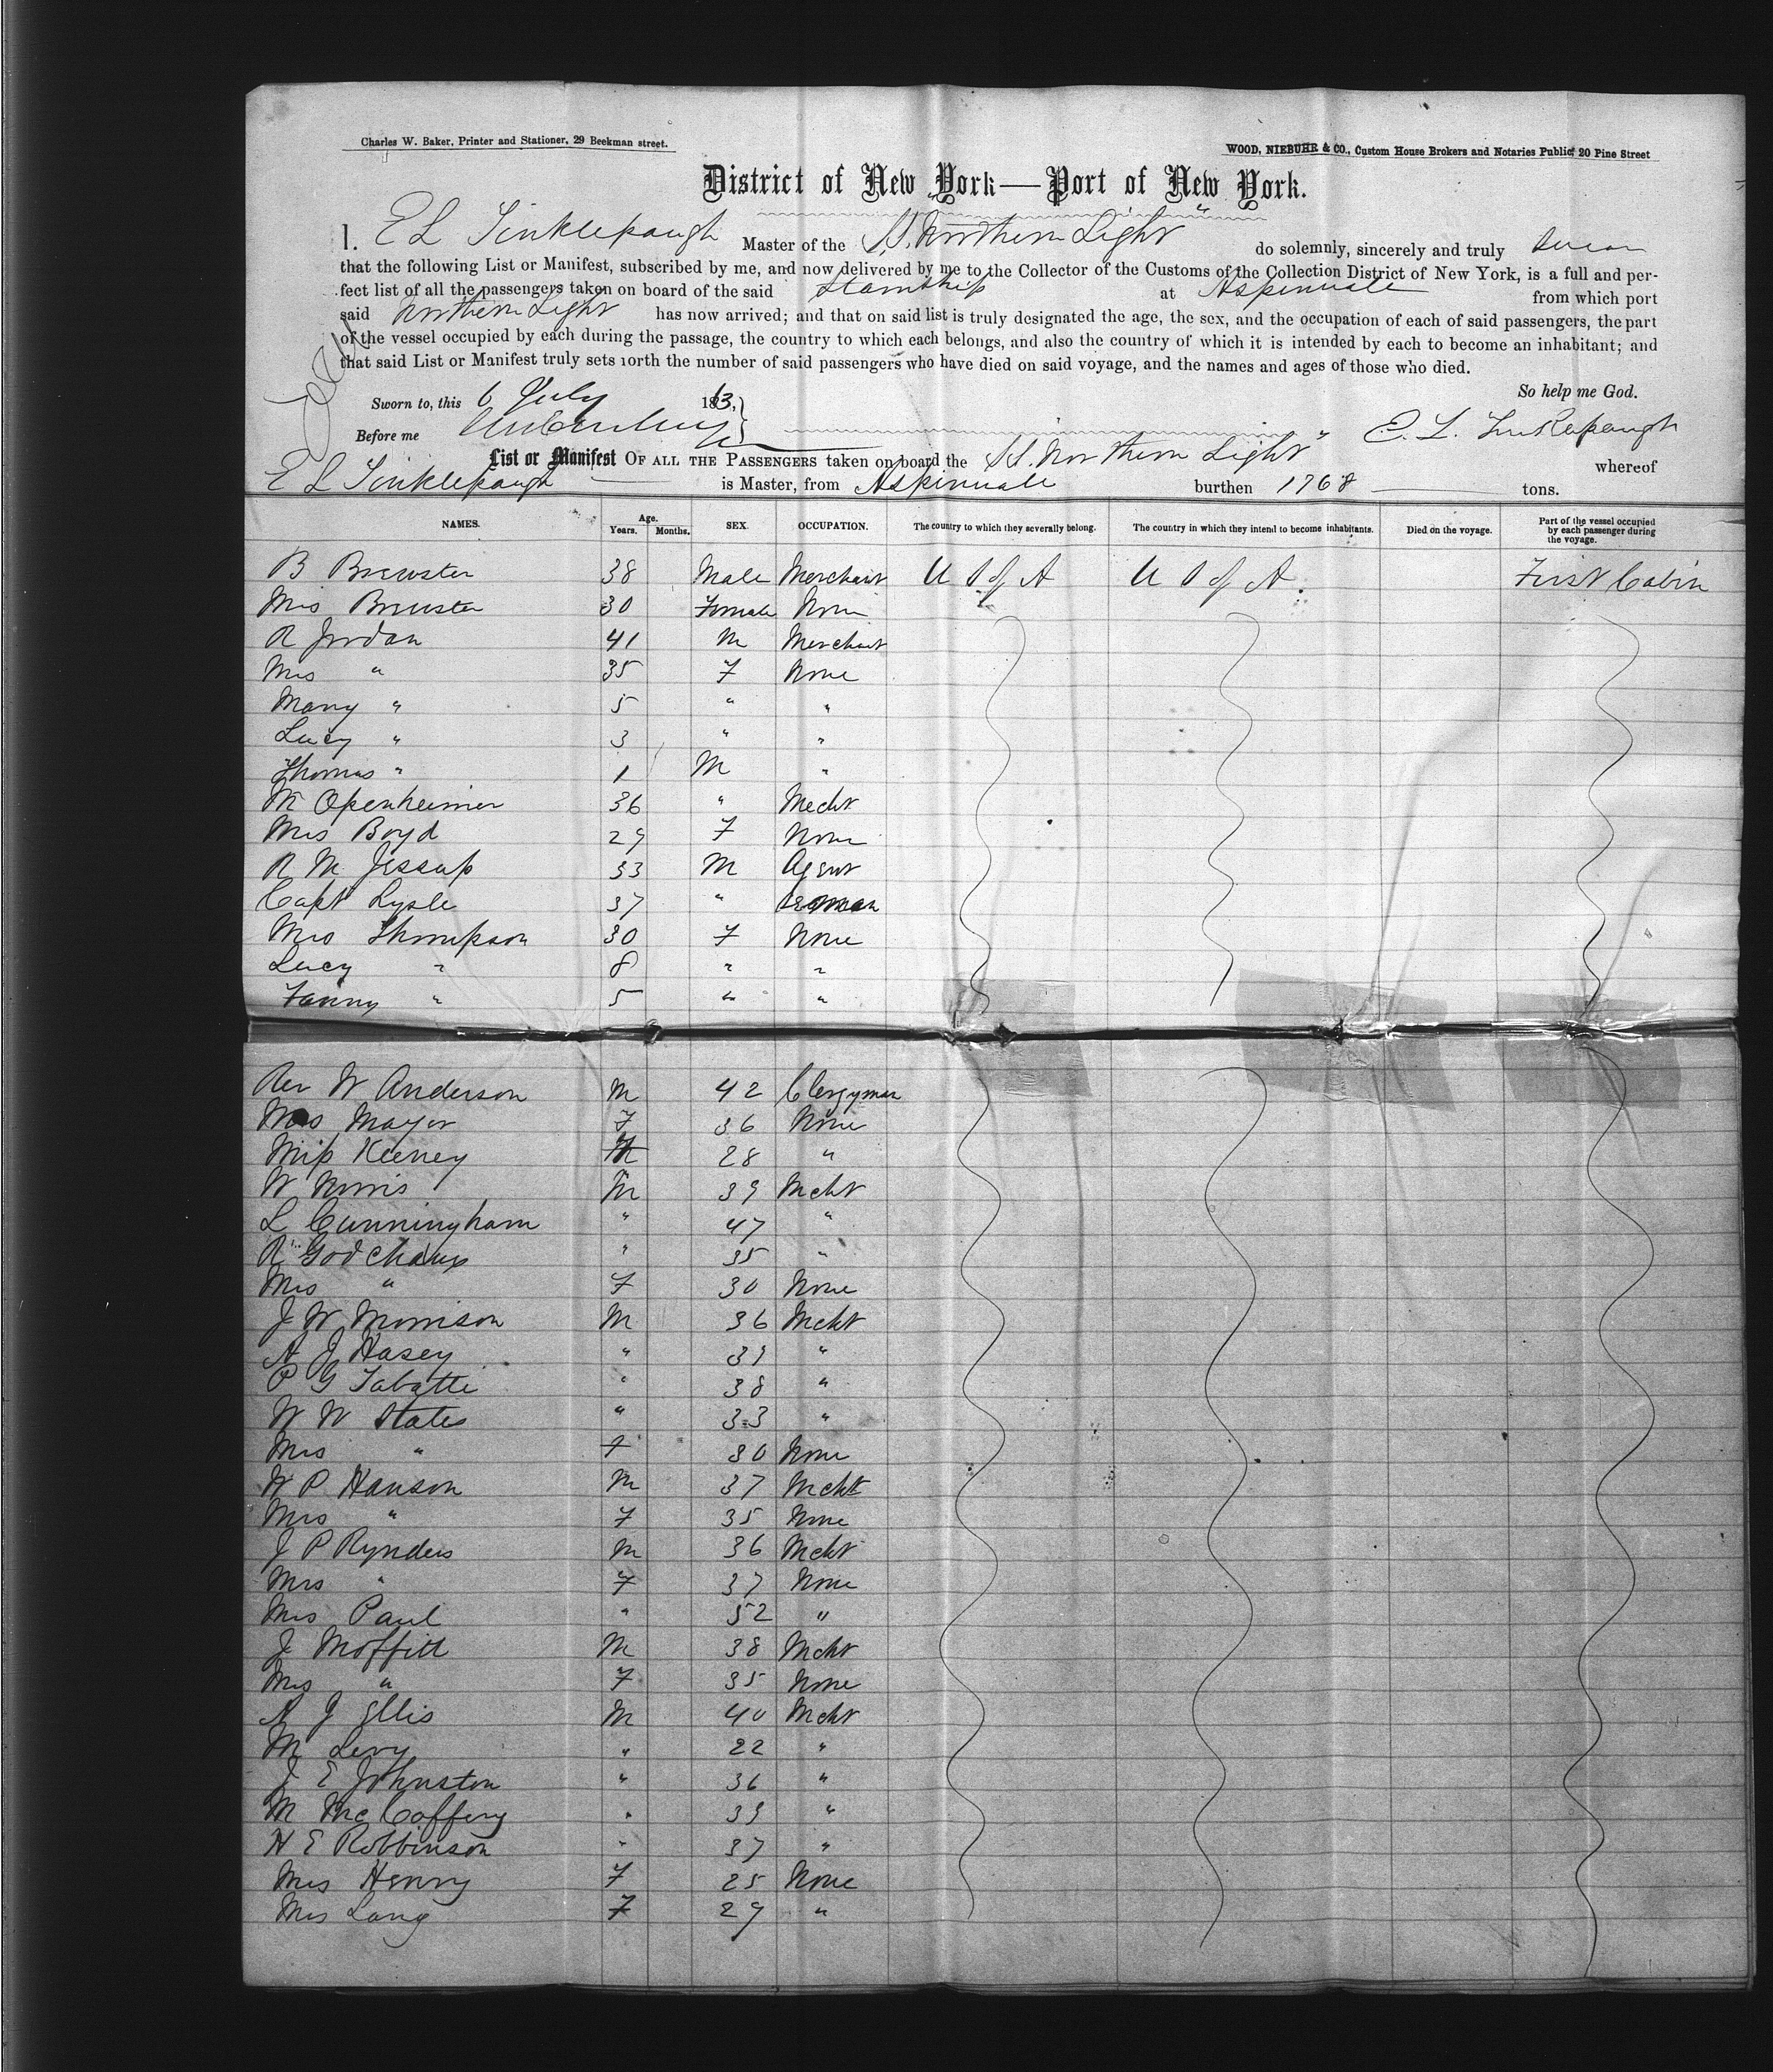 Charles W. Baker, Printer and Stationer, 29 Beekman street.
WOOD, NIEBUHR & CO., Custom House Brokers and Notaries Public, 20 Pine Street
District of New York—Port of New York.
I, E L Tinklepaugh Master of the "S.S. Northern Light" do solemnly, sincerely and truly swear
that the following List or Manifest, subscribed by me, and now delivered by me to the Collector of the Customs of the Collection District of New York, is a full and per-
fect list of all the passengers taken on board of the said Steamship at Aspinwall from which port
said Northern Light has now arrived; and that on said list is truly designated the age, the sex, and the occupation of each of said passengers, the part
of the vessel occupied by each during the passage, the country to which each belongs, and also the country of which it is intended by each to become an inhabitant; and
that said List or Manifest truly sets forth the number of said passengers who have died on said voyage, and the names and ages of those who died.
So help me God.
Sworn to, this 6 July 1863,
Before me E. L. Tinklepaugh
List or Manifest OF ALL THE PASSENGERS taken on board the S.S. Northern Light" whereof
E L Tinklepaugh is Master, from Aspinwall burthen 1768 tons.
NAMES. Age. Years. Months. SEX. OCCUPATION. The country to which they severally belong. The country in which they intend to become inhabitants. Died on the voyage. Part of the vessel occupied by each passenger during the voyage.
B Brewster 38 Male Merchant U S of A U S of A. First Cabin
Mrs Brewster 30 Female None
R Jordan 41 M Merchant
Mrs " 35 F None
Mary " 5 " "
Lucy " 3 " "
Thomas " 1 M "
M Openheimer 36 " Mecht
Mrs Boyd 29 F None
R M Jessup 33 M Agent
Capt Lysle 37 " Seaman
Mrs Thompson 30 F None
Lucy " 8 " "
Fanny " 5 " "
Rev W Anderson M 42 Clergyman
Mrs Mayor F 36 None
Miss Keeney F 28 "
W Norris M 39 Mcht
L Cunningham " 47 "
R Godchaux " 35 "
Mrs " F 30 None
J W Morrison M 36 Mcht
A J Hasey " 39 "
P G Tabatte " 38 "
W W States " 33 "
Mrs " F 30 None
W P Hanson M 37 Mcht
Mrs " F 35 None
J P Rynders M 36 Mcht
Mrs " F 37 None
Mrs Paul " 52 "
J Moffitt M 38 Mcht
Mrs " F 35 None
A J Ellis M 40 Mcht
M Levy " 22 "
J E Johnston " 36 "
M McCoffery " 39 "
H E Robbinson " 37 "
Mrs Henry F 25 None
Mrs Lang F 29 "